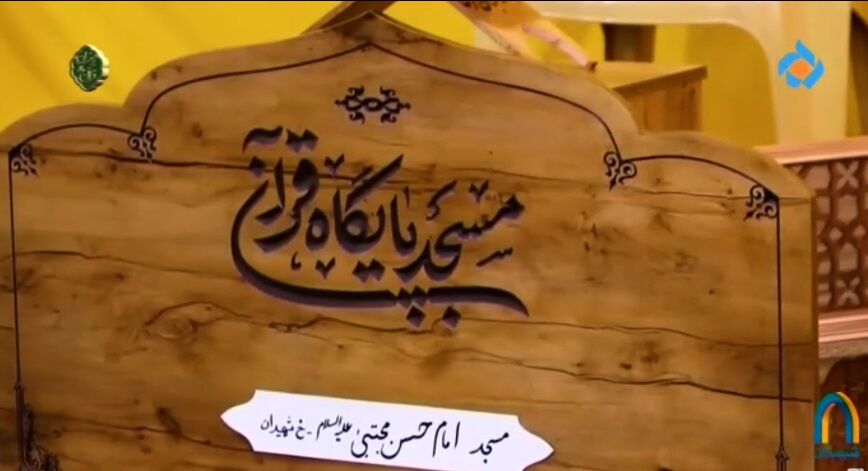 مسجد پایگاه قرآن
مسجد امام حسن مجتبی علیه السلام - خ شهیدان
شبستان